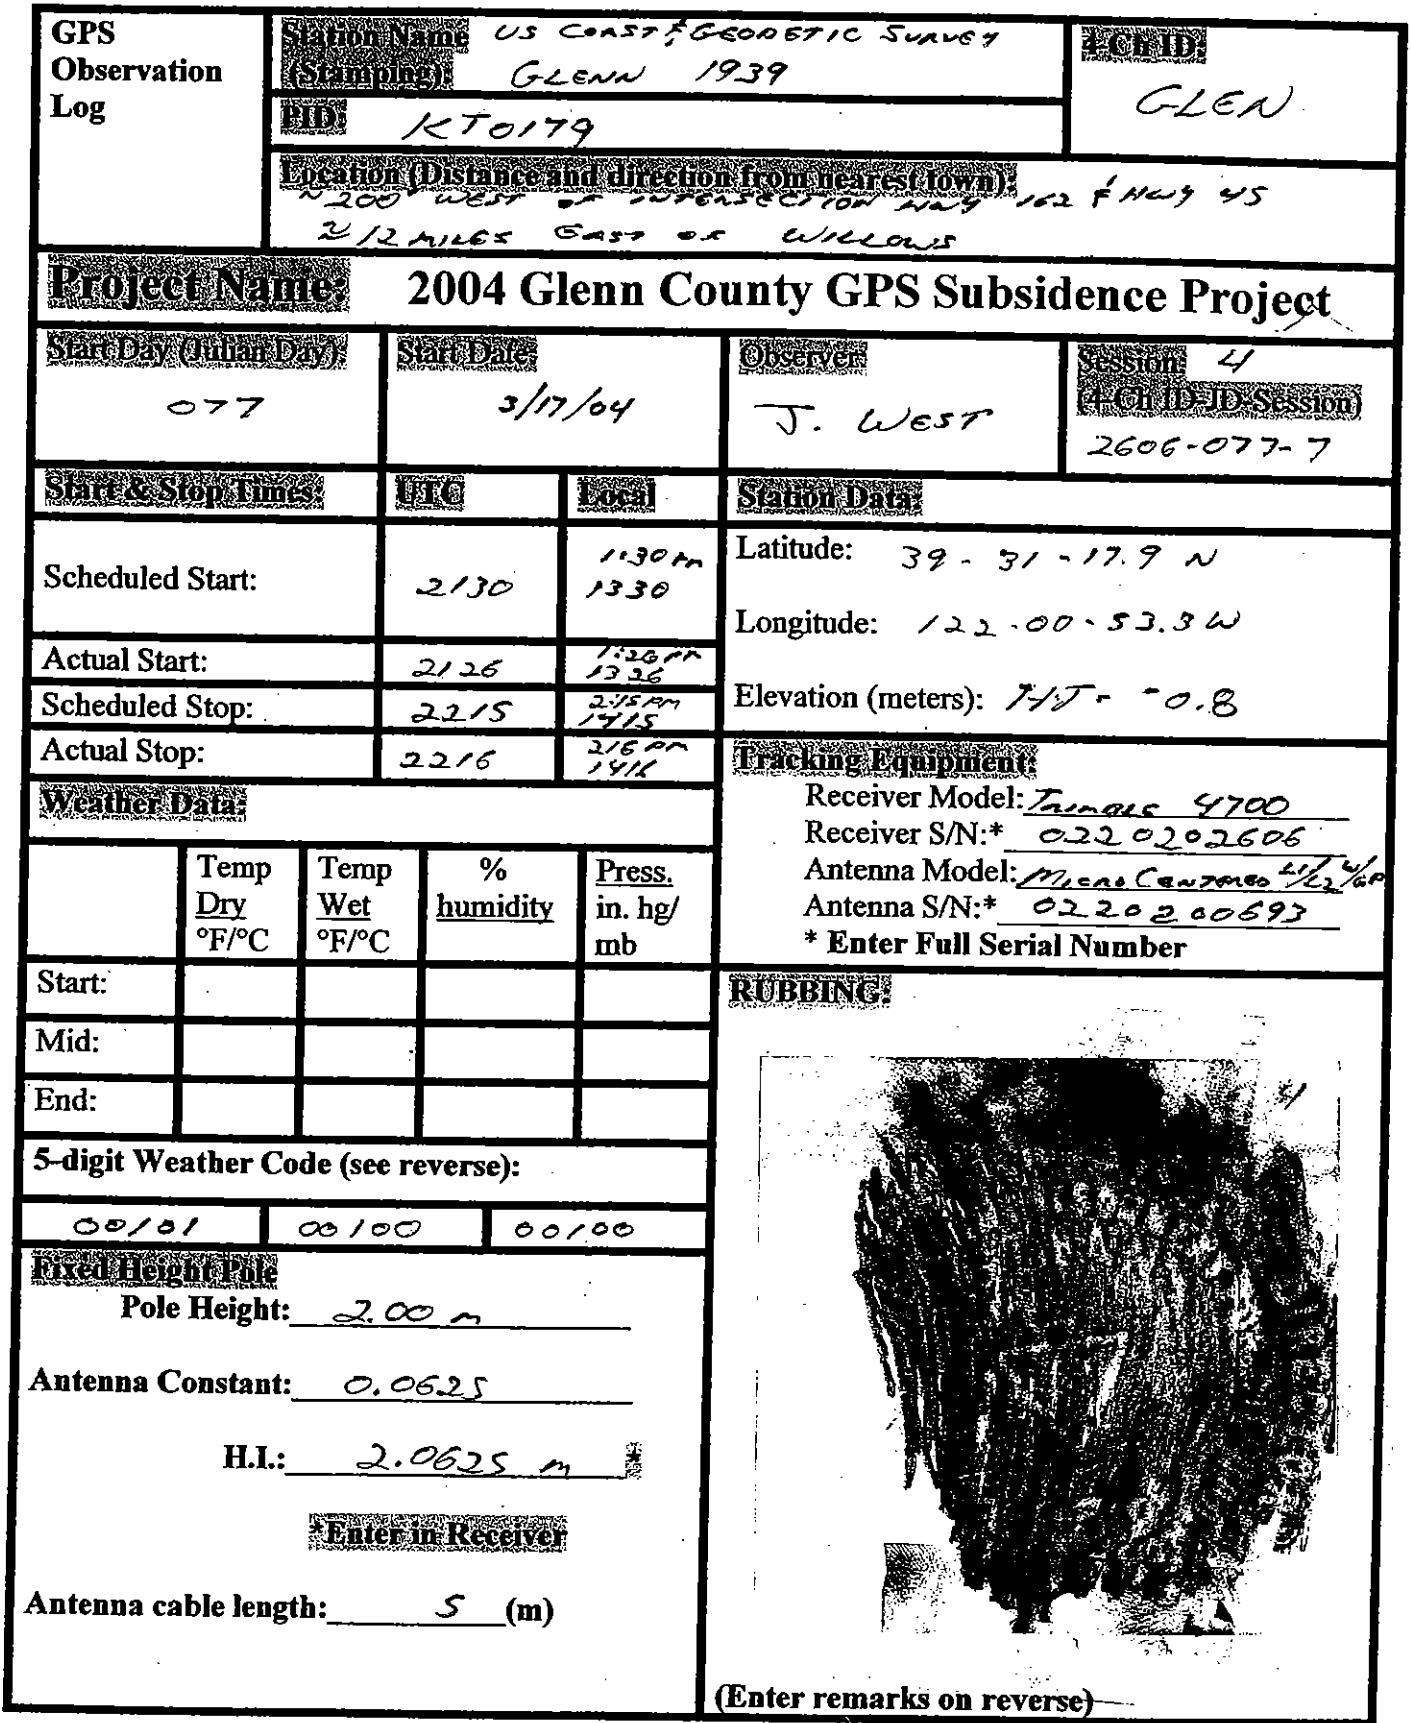 GPS
Observation
Log
Station Name US COAST & GEODETIC SURVEY
(Stamping): GLENN 1939
4-Ch ID:
GLEN
PID: KT0179
Location (Distance and direction from nearest town):
~200' WEST OF INTERSECTION HWY 162 & HWY 45
~12 MILES EAST OF WILLOWS
Project Name: 2004 Glenn County GPS Subsidence Project
Start Day (Julian Day)
077
Start Date:
3/17/04
Observer:
J. WEST
Session: 4
(4-Ch ID-JD-Session)
2606-077-7
Start & Stop Times: UTC Local
Scheduled Start: 2130 1:30 pm
1330
Actual Start: 2126 1:26 pm
1326
Scheduled Stop: 2215 2:15 pm
1415
Actual Stop: 2216 2:16 pm
1416
Station Data:
Latitude: 39-31-17.9 N
Longitude: 122-00-53.3 W
Elevation (meters): -0.8
Tracking Equipment:
Receiver Model: Trimble 4700
Receiver S/N:* 0220202606
Antenna Model: Micro Centered L1/L2 W/GP
Antenna S/N:* 0220200693
* Enter Full Serial Number
Weather Data:
Temp
Dry
°F/°C
Temp
Wet
°F/°C
%
humidity
Press.
in. hg/
mb
Start:
Mid:
End:
5-digit Weather Code (see reverse):
00101 00100 00100
Fixed Height Pole
Pole Height: 2.00 m
Antenna Constant: 0.0625
H.I.: 2.0625 m *
*Enter in Receiver
Antenna cable length: 5 (m)
RUBBING:
(Enter remarks on reverse)